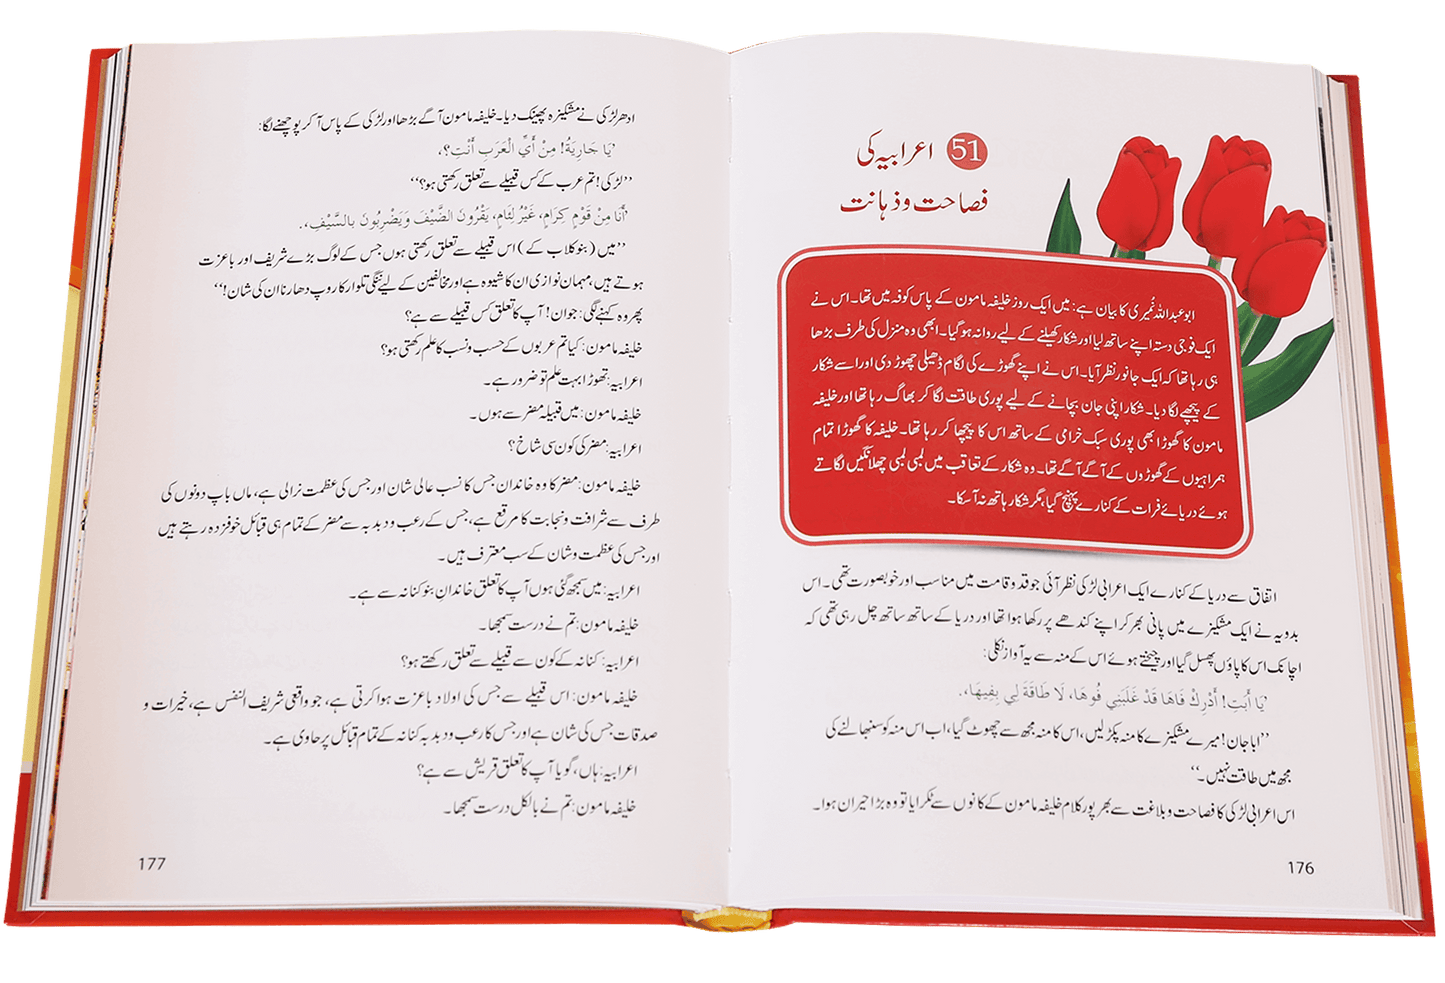 51 اعرابیہ کی
فصاحت و ذہانت
ابو عبداللہ نُمیری کا بیان ہے: میں ایک روز خلیفہ مامون کے پاس کوفہ میں تھا۔ اس نے
ایک فوجی دستہ اپنے ساتھ لیا اور شکار کھیلنے کے لیے روانہ ہو گیا۔ ابھی وہ منزل کی طرف بڑھا
ہی رہا تھا کہ ایک جانور نظر آیا۔ اس نے اپنے گھوڑے کی لگام ڈھیلی چھوڑ دی اور اسے شکار
کے پیچھے لگا دیا۔ شکار اپنی جان بچانے کے لیے پوری طاقت لگا کر بھاگ رہا تھا اور خلیفہ
مامون کا گھوڑا بھی پوری سبک خرامی کے ساتھ اس کا پیچھا کر رہا تھا۔ خلیفہ کا گھوڑا تمام
ہمراہیوں کے گھوڑوں کے آگے آگے تھا۔ وہ شکار کے تعاقب میں لمبی لمبی چھلانگیں لگاتے
ہوئے دریائے فرات کے کنارے پہنچ گیا، مگر شکار ہاتھ نہ آ سکا۔
اتفاق سے دریا کے کنارے ایک اعرابی لڑکی نظر آئی جو قد و قامت میں مناسب اور خوبصورت تھی۔ اس
بدویہ نے ایک مشکیزے میں پانی بھر کر اپنے کندھے پر رکھا ہوا تھا اور دریا کے ساتھ ساتھ چل رہی تھی کہ
اچانک اس کا پاؤں پھسل گیا اور چیختے ہوئے اس کے منہ سے یہ آواز نکلی:
’يَا أَبَتِ! أَدْرِكْ فَاهَا قَدْ غَلَبَنِي فُوهَا، لَا طَاقَةَ لِي بِفِيهَا‘۔
’’ابا جان! میرے مشکیزے کا منہ پکڑ لیں، اس کا منہ مجھ سے چھوٹ گیا، اب اس منہ کو سنبھالنے کی
مجھ میں طاقت نہیں۔‘‘
اس اعرابی لڑکی کا فصاحت و بلاغت سے بھرپور کلام خلیفہ مامون کے کانوں سے ٹکرایا تو وہ بڑا حیران ہوا۔
176
ادھر لڑکی نے مشکیزہ پھینک دیا۔ خلیفہ مامون آگے بڑھا اور لڑکی کے پاس آ کر پوچھنے لگا:
’يَا جَارِيَةُ! مِنْ أَيِّ الْعَرَبِ أَنْتِ؟‘
’’لڑکی! تم عرب کے کس قبیلے سے تعلق رکھتی ہو؟‘‘
’أَنَا مِنْ قَوْمٍ كِرَامٍ، غَيْرُ لِئَامٍ، يَقْرُونَ الضَّيْفَ وَيَضْرِبُونَ بِالسَّيْفِ‘۔
’’میں (بنو کلاب کے) اس قبیلے سے تعلق رکھتی ہوں جس کے لوگ بڑے شریف اور باعزت
ہوتے ہیں، مہمان نوازی ان کا شیوہ ہے اور مخالفین کے لیے ننگی تلوار کا روپ دھارنا ان کی شان!‘‘
پھر وہ کہنے لگی: جوان! آپ کا تعلق کس قبیلے سے ہے؟
خلیفہ مامون: کیا تم عربوں کے حسب و نسب کا علم رکھتی ہو؟
اعرابیہ: تھوڑا بہت علم تو ضرور ہے۔
خلیفہ مامون: میں قبیلہ مضر سے ہوں۔
اعرابیہ: مضر کی کون سی شاخ؟
خلیفہ مامون: مضر کا وہ خاندان جس کا نسب عالی شان اور جس کی عظمت نرالی ہے، ماں باپ دونوں کی
طرف سے شرافت و نجابت کا مرقع ہے، جس کے رعب و دبدبہ سے مضر کے تمام ہی قبائل خوفزدہ رہتے ہیں
اور جس کی عظمت و شان کے سب معترف ہیں۔
اعرابیہ: میں سمجھ گئی ہوں آپ کا تعلق خاندان بنو کنانہ سے ہے۔
خلیفہ مامون: تم نے درست سمجھا۔
اعرابیہ: کنانہ کے کون سے قبیلے سے تعلق رکھتے ہو؟
خلیفہ مامون: اس قبیلے سے جس کی اولاد باعزت ہوا کرتی ہے، جو واقعی شریف النفس ہے، خیرات و
صدقات جس کی شان ہے اور جس کا رعب و دبدبہ کنانہ کے تمام قبائل پر حاوی ہے۔
اعرابیہ: ہاں، گویا آپ کا تعلق قریش سے ہے؟
خلیفہ مامون: تم نے بالکل درست سمجھا۔
177